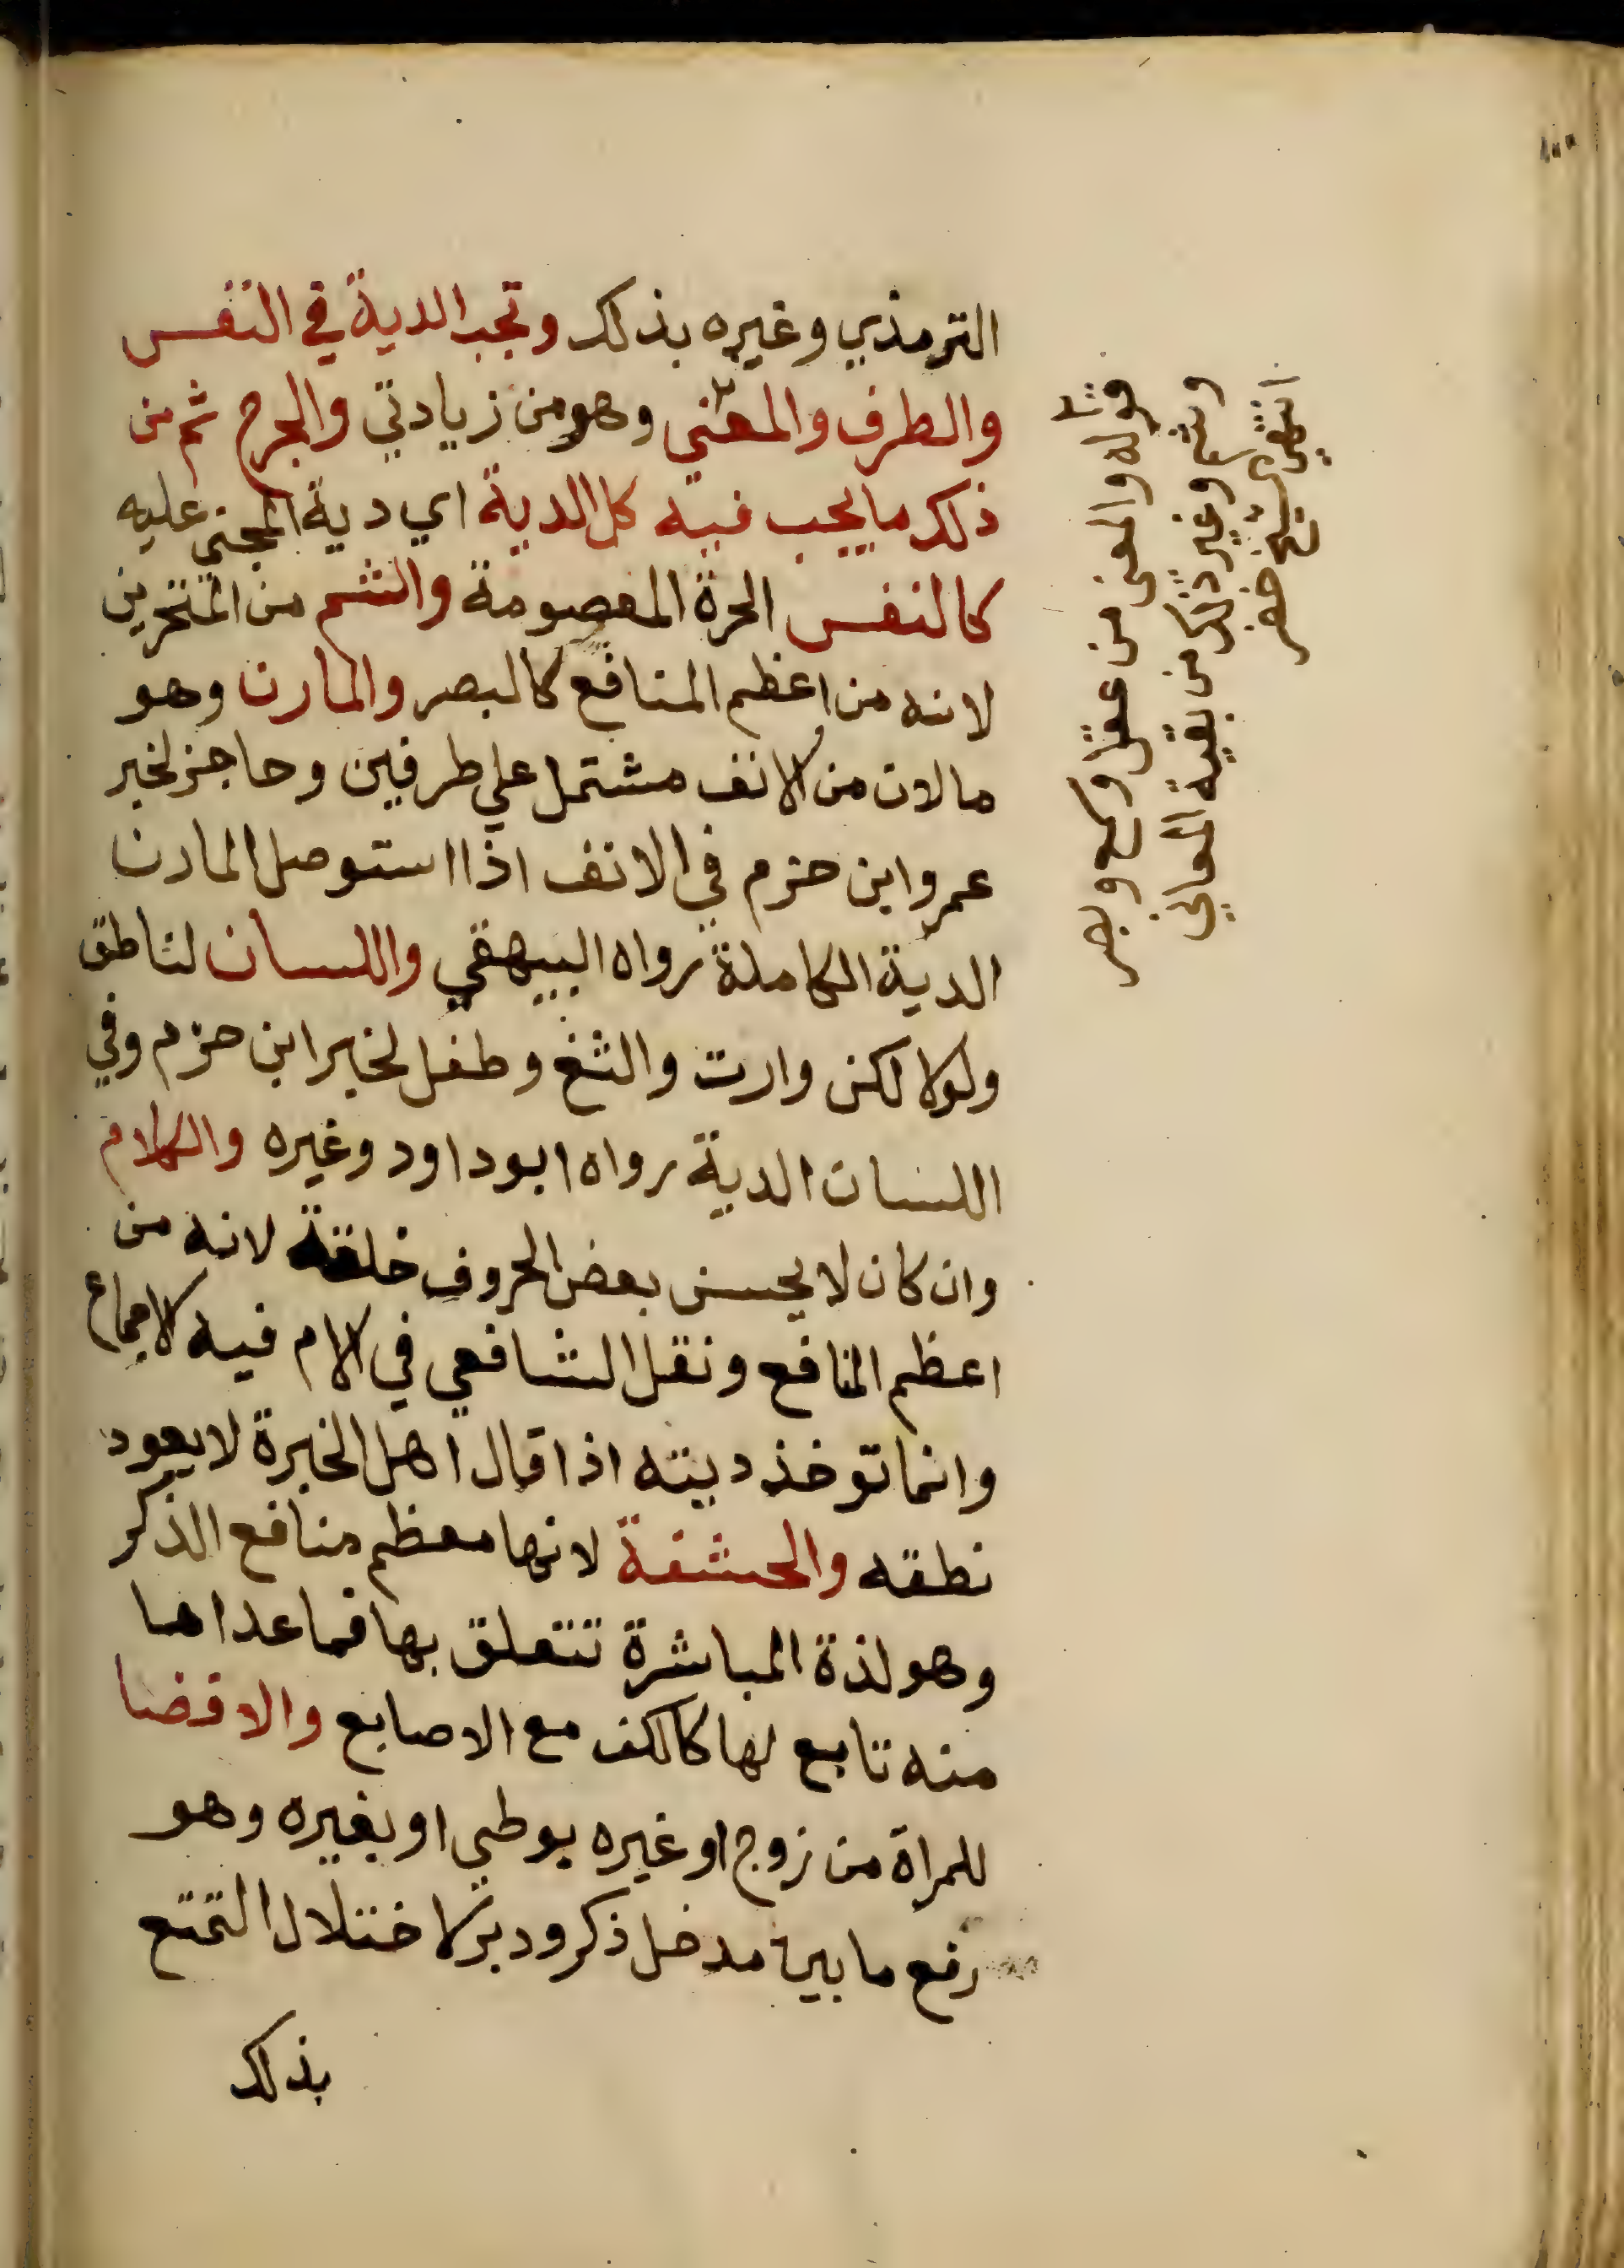 الترمذي وغيره بذلك وتجب الدية في النفس
والطرف والمعنى وهو من زيادتي والجرح ثم من
ذلك ما يجب فيه كل الدية اي دية المجني عليه
كالنفس الحرة المعصومة والشم من المنخرين
لانه من اعظم المنافع كالبصر والمارن وهو
ما لان من الانف مشتمل علي طرفين وحاجز لخبر
عمرو ابن حزم في الانف اذا استوصل المارن
الدية الكاملة رواه البيهقي واللسان لناطق
ولو لالكن وارت والثغ وطفل لخبر ابن حزم وفي
اللسان الدية رواه ابو داود وغيره والكلام
وان كان لا يحسن بعض الحروف خلقة لانه من
اعظم المنافع ونقل الشافعي في الام فيه الاجماع
وانما توخذ ديته اذا قال اهل الخبرة لا يعود
نطقه والحشفة لانها معظم منافع الذكر
وهو لذة المباشرة تتعلق بها فما عداها
منه تابع لها كالكف مع الاصابع والافضا
للمراة من زوج او غيره بوطي او بغيره وهو
رفع ما بين مدخل ذكر ودبر لاختلال التمتع
بذلك
قوله والمعنى من عقل وسمع وبصر
وشم وغير ذلك من بقية المعاني
انتهى شيخ خضر